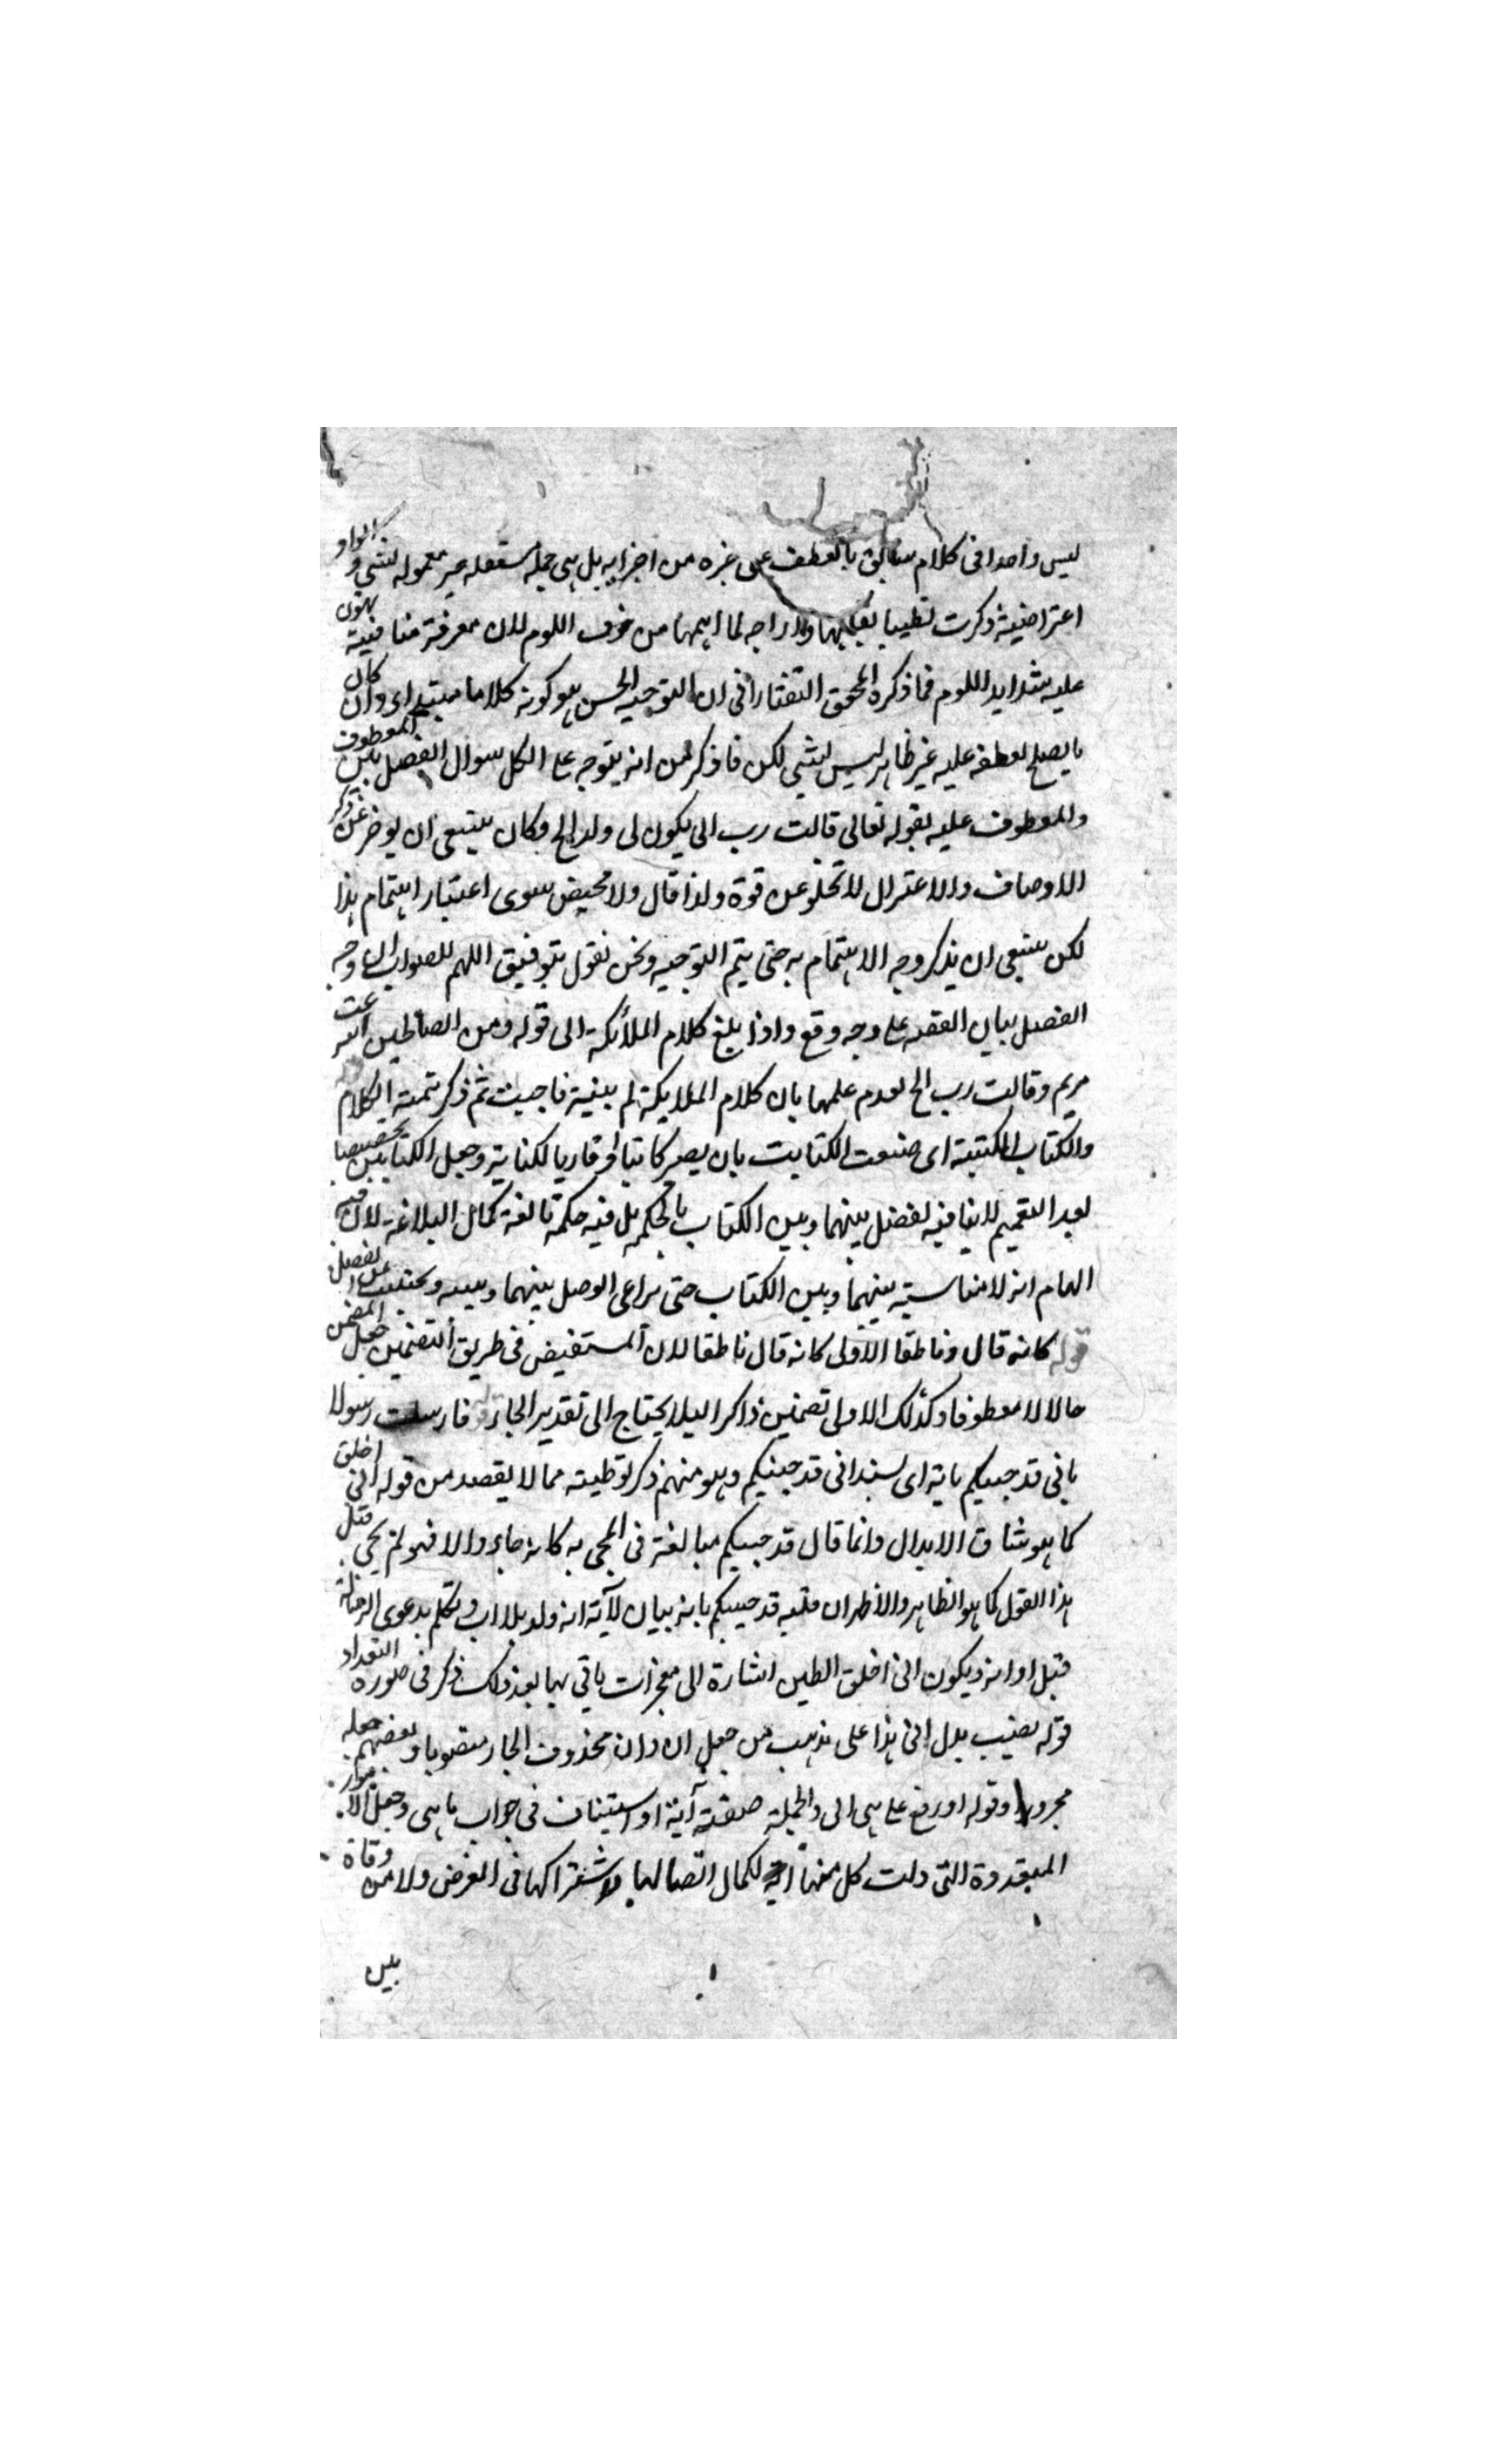 ليس واحدا في كلام سابق بالعطف على غيره من اجزايه بل هي جملة مستقلة غير معمولة لشي والواو
اعتراضية ذكرت تطييبا لقلبها وازاحة لما اهمها من خوف اللوم لان معرفة منافية يهون
عليه شدايد اللوم فما ذكره المحقق التفتازاني ان التوجيه الحسن هو كونه كلاما مبتدا وان كان
ما يصلح لعطفه عليه غير ظاهر ليس بشي لكن ما ذكر من انه يتوجه على الكل سوال الفصل بين المعطوف
والمعطوف عليه بقوله تعالى قالت رب انى يكون لى ولد الخ وكان ينبغى ان يوخر عن ذكر
الاوصاف والاعتزال لا تخلو عن قوة ولذا قال ولا محيض سوى اعتبار اهتمام بهذا
لكن ينبغى ان يذكر وجه الاهتمام به حتى يتم التوجيه ونحن نقول بتوفيق اللهم للصواب ان وجه
الفصل بيان القصة على وجه وقع واذا بلغ كلام الملائكة الى قوله ومن الصالحين
مريم وقالت رب الخ لعدم علمها بان كلام الملايكة لم ينته فاجيبت ثم ذكر تتمة الكلام
والكتاب المكتبة اى صنعت الكتابت بان يصير كاتبا او قاريا لكتابة وجعل الكتابين تخصيصا
بعد التعميم لا ينافيه لفصل بينهما وبين الكتاب بالحكمة بل فيه حكمة بالغة كمال البلاغة لان فيه
الهام انه لا مناسبة بينهما وبين الكتاب حتى يراعى الوصل بينهما وبينه
قوله كانه قال وناطقا الاولى كانه قال ناطقا لان المستفيض في طريق التضمين جعل المضمن
حالا لا معطوفا وكذلك الاولى تضمين ذاكرا ليلا يحتاج الى تقدير الجار فارسلت رسولا
باني قد جيتكم باية اى بسند اني قد جيتكم وهو منهم ذكر توطية مما لا يقصد من قوله اني اخلق
كما هو شان الابدال وانما قال قد جيتكم مبالغة في المجى به كانه جاء والا فهو لم يجى قبل
هذا القول كما هو الظاهر والاظهر ان قلبه قد جيتكم بانه بيان لآية انه ولد بلا اب وتكلم بدعوى الرسالة
قبل اوانه ويكون اني اخلق الطين اشارة الى معجزات ياتي بها بعد ذلك ذكر في صورة التعداد
قوله نصب بدل اني هذا على مذهب من جعل ان وان محذوف الجار منصوبا وبعضهم جعله
مجرورا وقوله او رفع على هي اني والجملة صفة آية او استيناف في جواب ما هي وجعل
المتعددة التي دلت كل منها آية لكمال اتصالها واشتراكها في الغرض ولا
بين